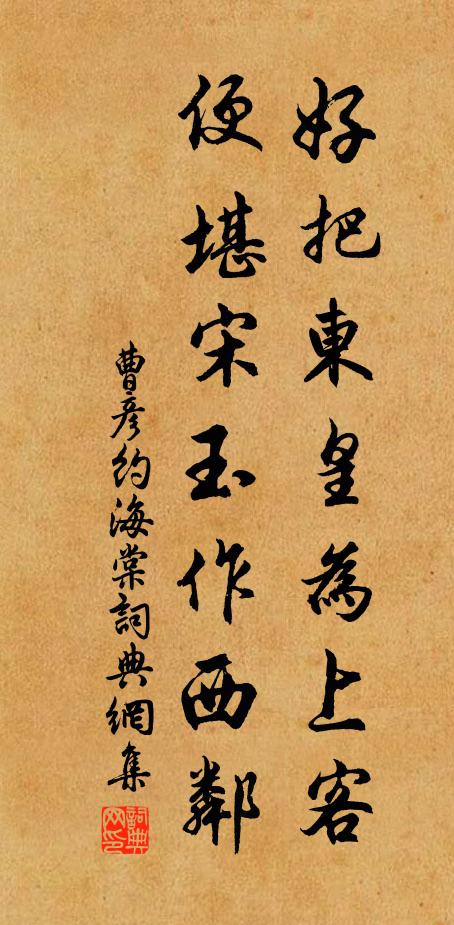 好把東皇為上客
便堪宋玉作西鄰
曹彦約海棠詞典網集
詞典網印